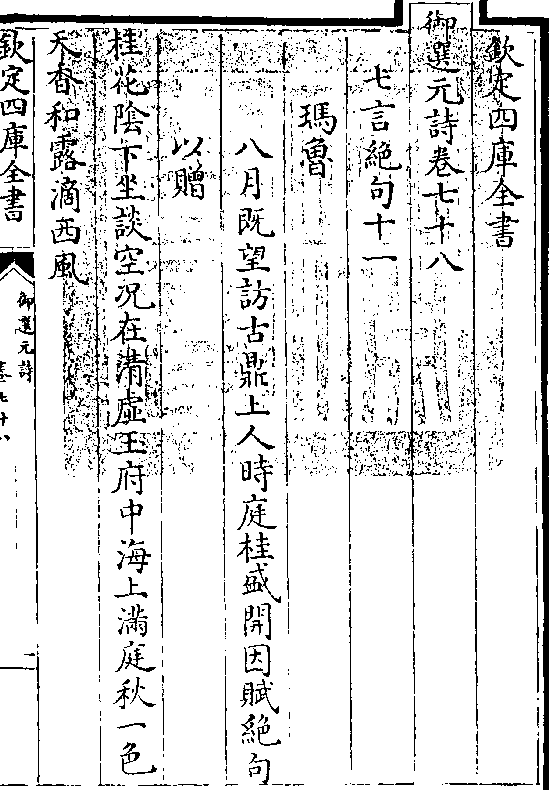 欽定四庫全書
御選元詩卷七十八
七言絶句十一
瑪魯
八月既望訪古鼎上人時庭桂盛開因賦絶句
以贈
桂花陰下坐談空况在清虛王府中海上滿庭秋一色
天香和露滴西風
欽定四庫全書
御選元詩
卷七十八
一